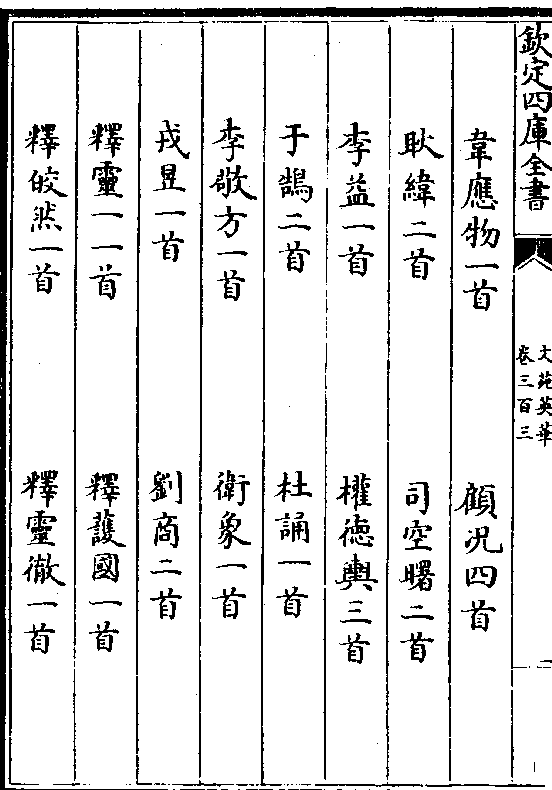 欽定四庫全書
文苑英華
卷三百三
韋應物一首 顧況四首
耿緯二首 司空曙二首
李益一首 權德輿三首
于鵠二首 杜誦一首
李敭方一首 衛象一首
戎昱一首 劉商二首
釋靈一一首 釋護國一首
釋皎然一首 釋靈徹一首